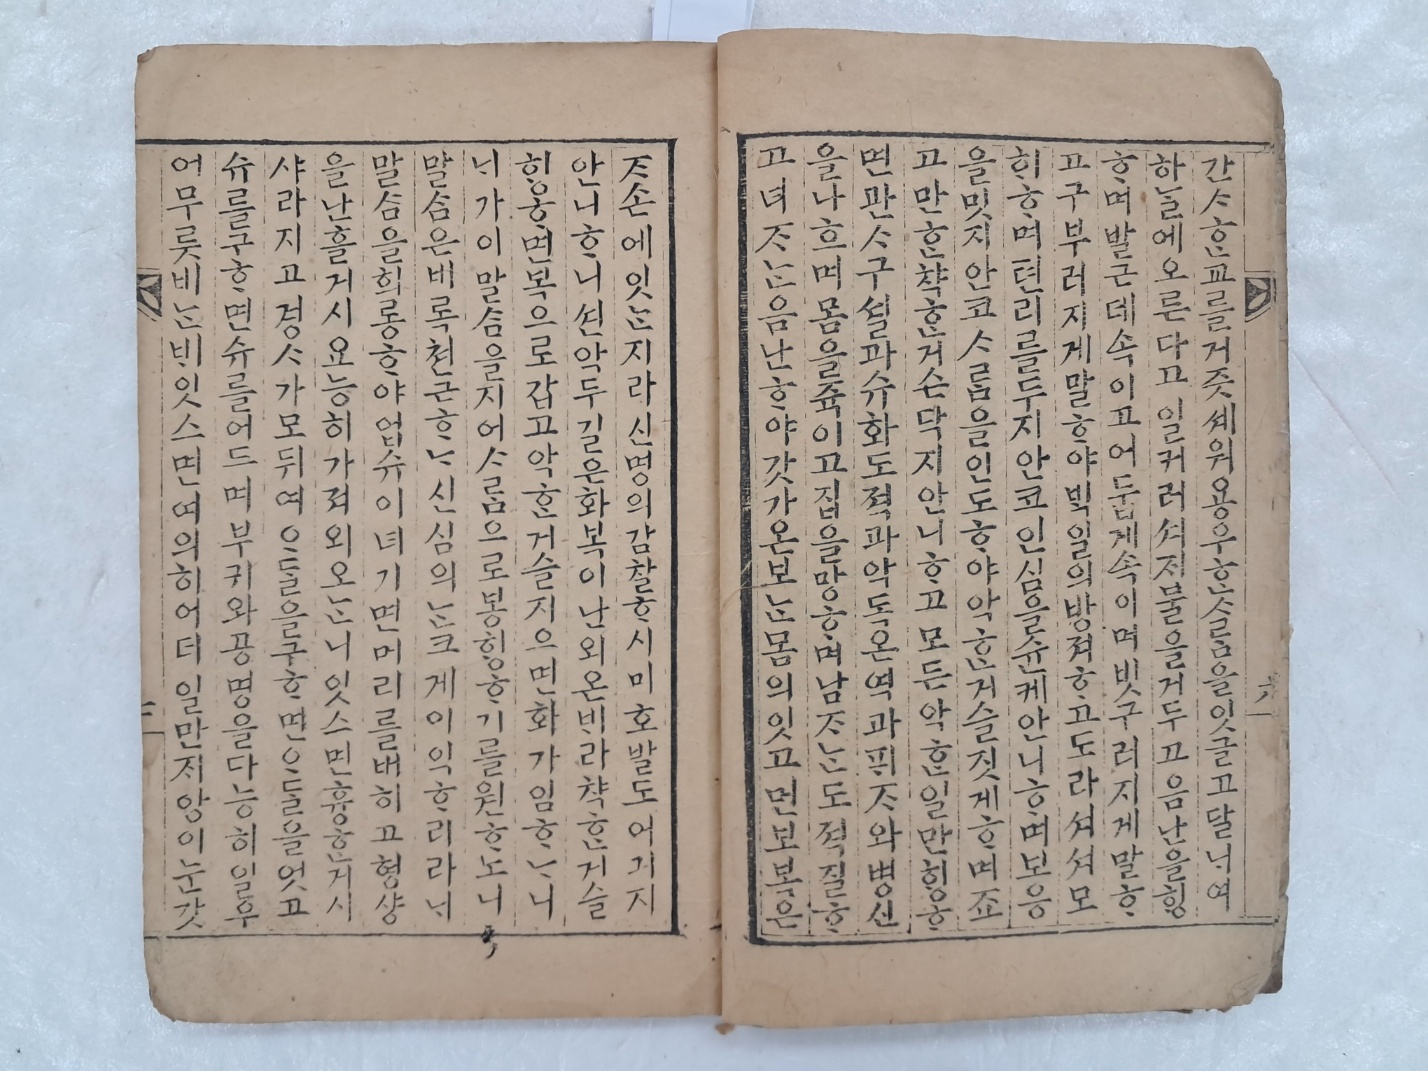 간ᄉᆞᄒᆞᆫ교를거즛셰워용우ᄒᆞᆫᄉᆞᄅᆞᆷ을잇ᄭᅳᆯ고달ᄂᆡ여
하ᄂᆞᆯ에오른다고일커러셔ᄌᆡ물을거두고음난을ᄒᆡᆼ
ᄒᆞ며발근데속이고어둡게속이며빗구러지게말ᄒᆞ
고구부러지게말ᄒᆞ야ᄇᆡᆨ일의방져ᄒᆞ고도라셔셔모
ᄒᆡᄒᆞ며텬리를두지안코인심을슌케안니ᄒᆞ며보응
을밋지안코ᄉᆞᄅᆞᆷ을인도ᄒᆞ야악ᄒᆞᆫ거슬짓게ᄒᆞ며죠
고만ᄒᆞᆫ챡ᄒᆞᆫ거슨닥지안니ᄒᆞ고모든악ᄒᆞᆫ일만ᄒᆡᆼᄒᆞ
면관ᄉᆞ구셜과슈화도젹과악독온역과픠ᄌᆞ와병신
을나흐며몸을쥭이고집을망ᄒᆞ며남ᄌᆞᄂᆞᆫ도젹질ᄒᆞ
고녀ᄌᆞᄂᆞᆫ음난ᄒᆞ야갓가온보ᄂᆞᆫ몸의잇고먼보복은
ᄌᆞ손에잇ᄂᆞᆫ지라신명의감찰ᄒᆞ시미호발도어긔지
안니ᄒᆞ니션악두길은화복이난외온ᄇᆡ라챡ᄒᆞᆫ거슬
ᄒᆡᆼᄒᆞ면복으로갑고악ᄒᆞᆫ거슬지으면화가임ᄒᆞᄂᆞ니
ᄂᆡ가이말ᄉᆞᆷ을지어ᄉᆞᄅᆞᆷ으로봉ᄒᆡᆼᄒᆞ기를원ᄒᆞ노니
말ᄉᆞᆷ은비록쳔근ᄒᆞᄂᆞ신심의ᄂᆞᆫ크게이익ᄒᆞ리라ᄂᆡ
말ᄉᆞᆷ을희롱ᄒᆞ야업슈이녀기면머리를배히고형샹
을난흘거시요능히가져외오ᄂᆞ니잇스면흉ᄒᆞᆫ거시
샤라지고경ᄉᆞ가모뒤여ᄋᆞᄃᆞᆯ을구ᄒᆞ면ᄋᆞᄃᆞᆯ을엇고
슈를구ᄒᆞ면슈를어드며부귀와공명을다능히일우
어무릇비ᄂᆞᆫᄇᆡ잇스면여의히어더일만ᄌᆡ앙이눈갓